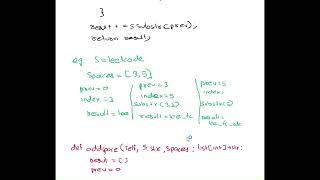 }
result += s.substr(prev);
return result;
eg. S=leetcode
Spaces = [3,5]
prev=0 prev=3 prev=5
index=3 index=5 index=
substr(3,2) substr(5)
result=lee result=lee_tc result=
lee_tc_ode
def addspace(self, s:str, spaces: list[int])→str:
result = []
prev=0